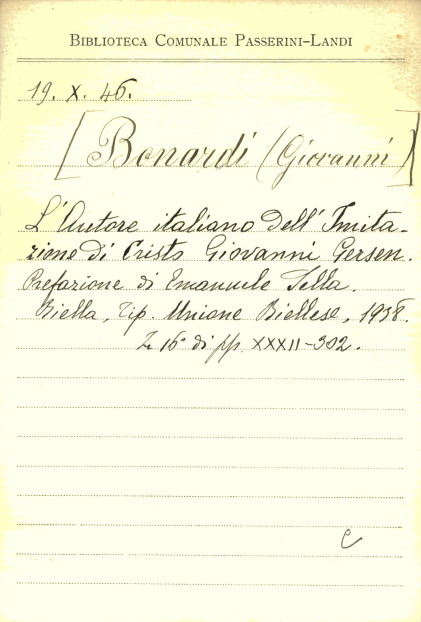 BIBLIOTECA COMUNALE PASSERINI-LANDI
19. X. 46.
[Bonardi (Giovanni)]
L'Autore italiano dell'Imita-
zione di Cristo Giovanni Gersen.
Prefazione di Emanuele Sella.
Biella, Tip. Unione Biellese, 1938.
In 16° di pp. XXXII-302.
c